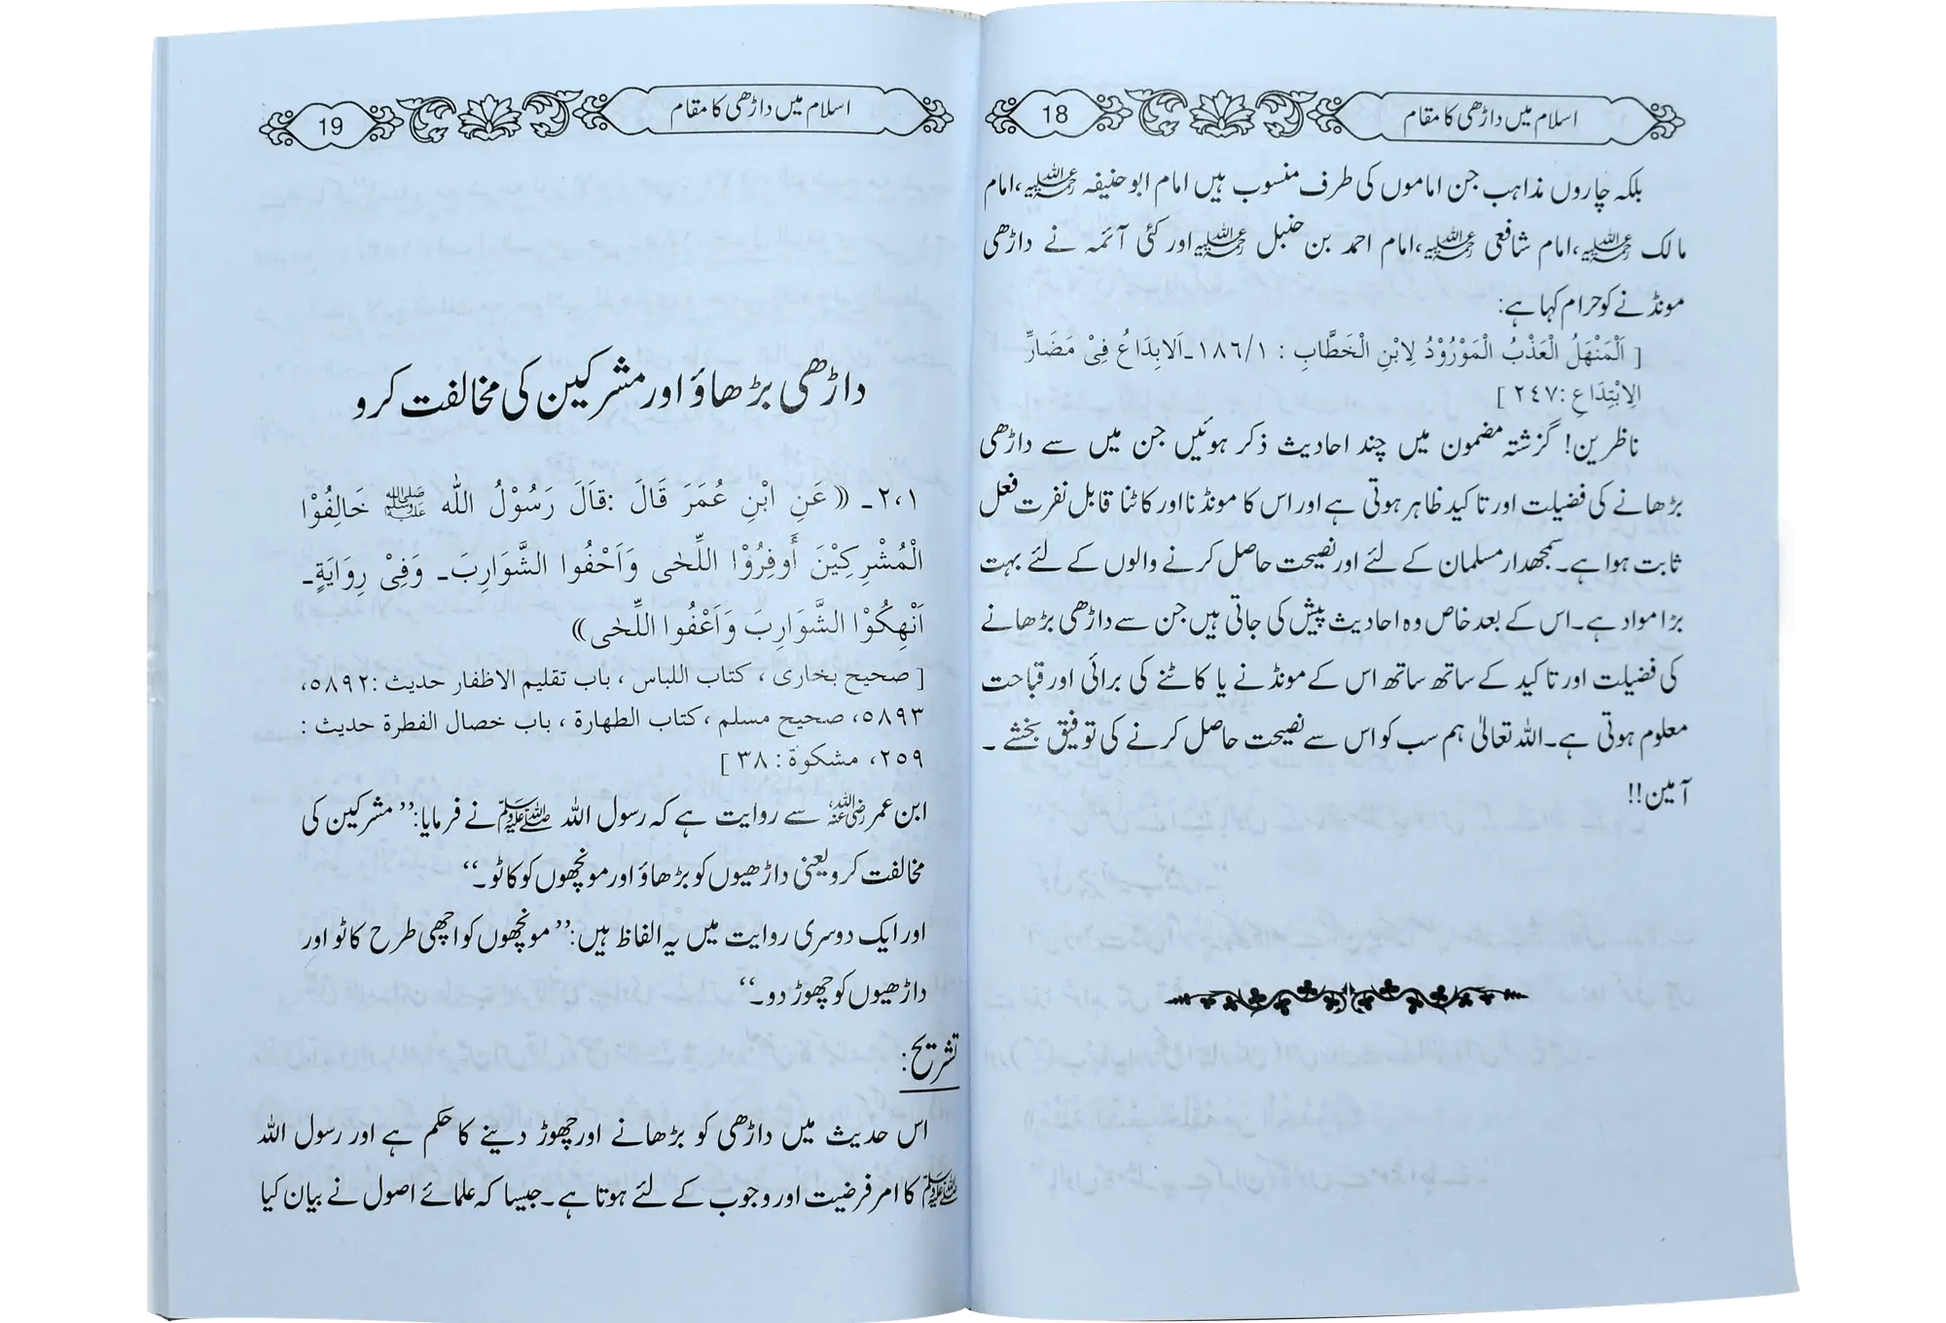 اسلام میں داڑھی کا مقام 18
بلکہ چاروں مذاہب جن اماموں کی طرف منسوب ہیں امام ابوحنیفہ رحمہ اللہ علیہ، امام
مالک رحمہ اللہ علیہ، امام شافعی رحمہ اللہ علیہ، امام احمد بن حنبل رحمہ اللہ علیہ اور کئی آئمہ نے داڑھی
مونڈنے کو حرام کہا ہے:
[ اَلْمَنْهَلُ الْعَذْبُ الْمَوْرُوْدُ لِابْنِ الْخَطَّابِ : ١/١٨٦۔ اَلاِبِدَاعُ فِىْ مَضَارِّ
الِابْتِدَاعِ :٢٤٧ ]
ناظرین! گزشتہ مضمون میں چند احادیث ذکر ہوئیں جن میں سے داڑھی
بڑھانے کی فضیلت اور تاکید ظاہر ہوتی ہے اور اس کا مونڈنا اور کاٹنا قابل نفرت فعل
ثابت ہوا ہے۔ سمجھدار مسلمان کے لئے اور نصیحت حاصل کرنے والوں کے لئے بہت
بڑا مواد ہے۔ اس کے بعد خاص وہ احادیث پیش کی جاتی ہیں جن سے داڑھی بڑھانے
کی فضیلت اور تاکید کے ساتھ ساتھ اس کے مونڈنے یا کاٹنے کی برائی اور قباحت
معلوم ہوتی ہے۔ اللہ تعالیٰ ہم سب کو اس سے نصیحت حاصل کرنے کی توفیق بخشے ۔
آمین!!
اسلام میں داڑھی کا مقام 19
داڑھی بڑھاؤ اور مشرکین کی مخالفت کرو
٢،١۔ (( عَنِ ابْنِ عُمَرَ قَالَ :قاَلَ رَسُوْلُ اللّٰه ﷺ خَالِفُوْا
الْمُشْرِكِيْنَ أَوفِرُوْا اللِّحٰى وَاَحْفُوا الشَّوَارِبَ۔ وَفِىْ رِوَايَةٍ۔
اَنْهِكُوْا الشَّوَارِبَ وَاَعْفُوا اللِّحٰى))
[ صحیح بخاری ، کتاب اللباس ، باب تقلیم الاظفار حدیث :٥٨٩٢،
٥٨٩٣، صحیح مسلم ، کتاب الطهارة ، باب خصال الفطرة حدیث :
٢٥٩، مشکوة : ٣٨ ]
ابن عمر رضی اللہ عنہ سے روایت ہے کہ رسول اللہ ﷺ نے فرمایا: ’’مشرکین کی
مخالفت کرو یعنی داڑھیوں کو بڑھاؤ اور مونچھوں کو کاٹو۔‘‘
اور ایک دوسری روایت میں یہ الفاظ ہیں: ’’مونچھوں کو اچھی طرح کاٹو اور
داڑھیوں کو چھوڑ دو۔‘‘
تشریح:
اس حدیث میں داڑھی کو بڑھانے اور چھوڑ دینے کا حکم ہے اور رسول اللہ
ﷺ کا امر فرضیت اور وجوب کے لئے ہوتا ہے۔ جیسا کہ علمائے اصول نے بیان کیا